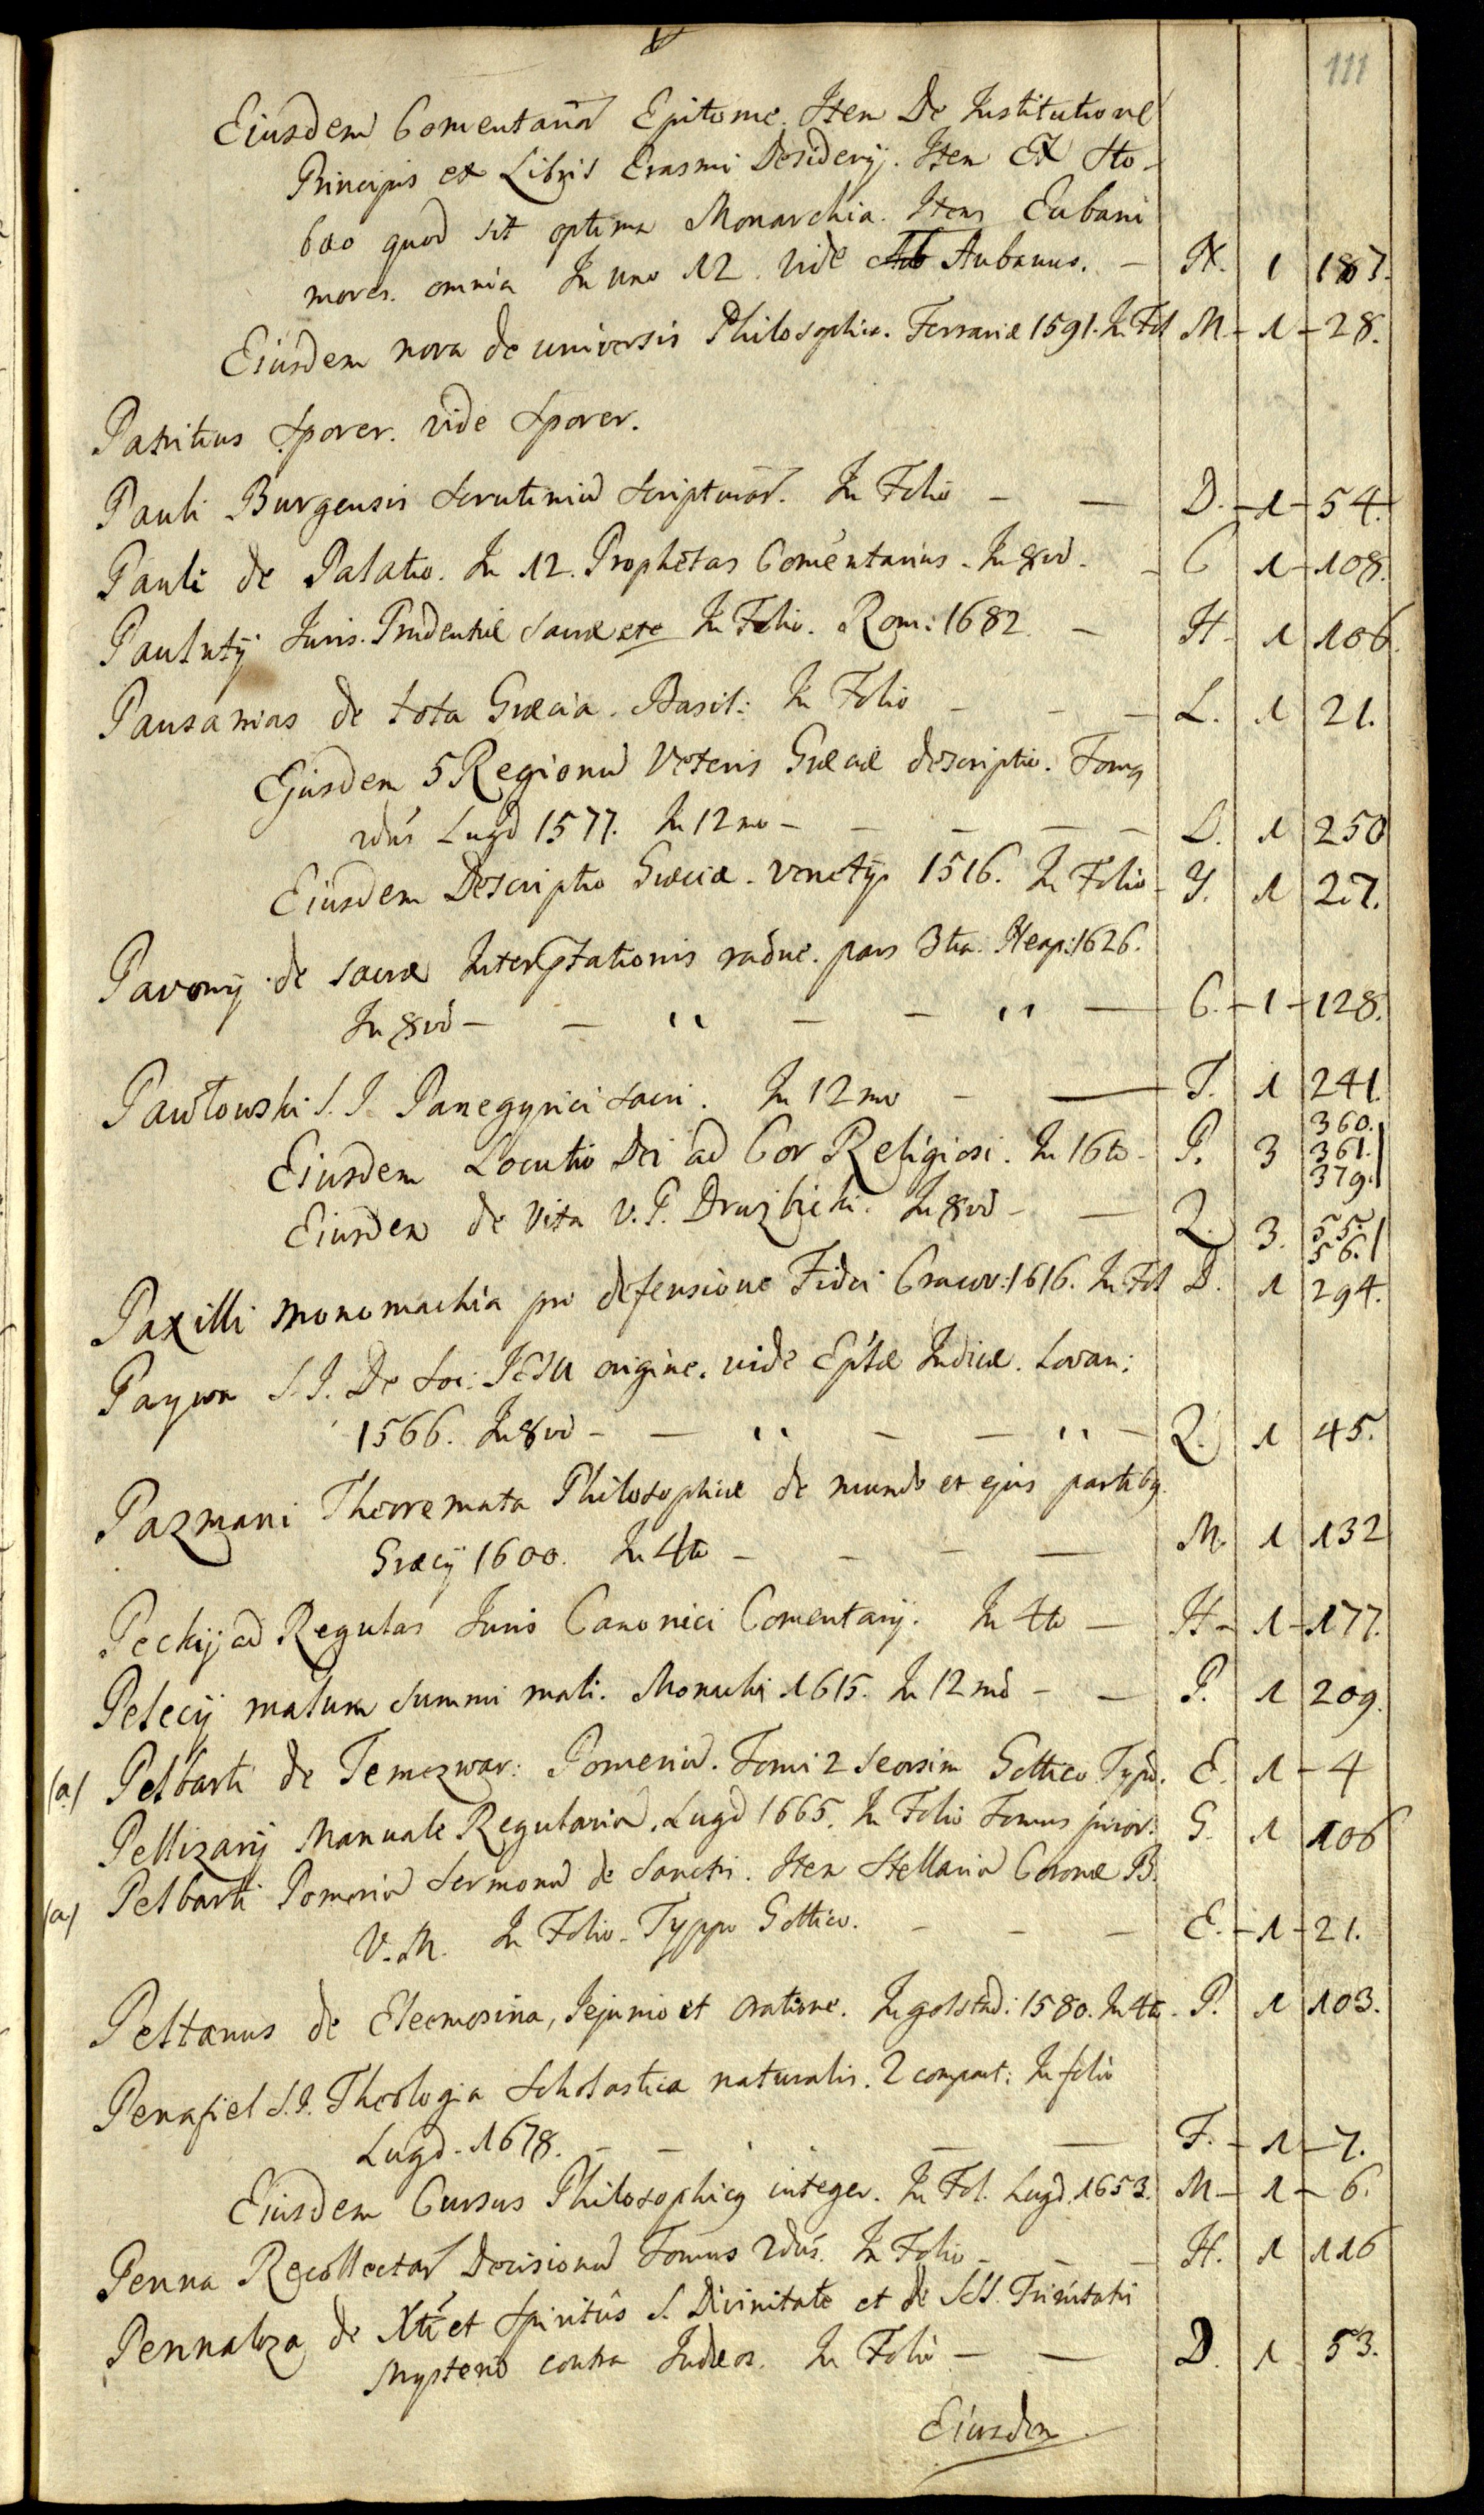 111
Eiusdem Comentarior Epitome. Item De Institutione
Principis ex Libris Erasmi Desiderij. Item Ex Sto-
bæo quod sit optima Monarchia. Item Eubani
mores. omnia In uno 12. vide Aubanus. — N. 1 187.
Eiusdem nova de universis Philosophia. Ferrariæ 1591. In Fol M. - 1 - 28.
Patritius Sporer. vide Sporer.
Pauli Burgensis Scrutiniũ Scripturar. In Folio — — D. - 1 - 54.
Pauli de Palatio. In 12. Prophetas Comẽntarius. In 8vo. - C 1 - 108.
Paulutij Juris. Prudentiæ Sacræ etc In Folio. Rom: 1682. — H - 1 106.
Pausanias de tota Græcia. Basil: In Folio — — — L. 1 21.
Ejusdem 5 Regionũ Veteris Græciæ descriptio. Tomq
2dus Lugd 1577. In 12mo — — — — — L. 1 250
Eiusdem Descriptio Græciæ. Venetijs 1516. In Folio - Y. 1 27.
Pavonij de sacræ Interptationis raõne. pars 3tia. Neap: 1626.
In 8vo — — " — — " — C. - 1 - 128.
Pawłowski S. J. Panegyrici sacri. In 12mo — — T. 1 241.
Eiusdem Locutio Dei ad Cor Religiosi. In 16to - P. 3 360. 361. 379.
Eiusdem de Vita V. P. Druzbicki. In 8vo — — Q. 3. 55. 56.
Paxilli monomachia pro defensione Fidei Cracov: 1616. In Fol D. 1 294.
Paywa S. J. De Soc: JESU origine. vide Eptæ Indicæ. Lovan:
1566. In 8vo — — " — — " — Q. 1 45.
Pazmani Theoremata Philosophiæ de mundo et ejus partibq.
Græcij 1600. In 4to — — — — M. 1 132
Peckij ad Regulas Juris Canonici Comentarij. In 4to — H - 1 - 177.
Pelecij malum summi mali. Monachi 1615. In 12mo — — P. 1 209.
(a) Pelbarti de Temezwar: Pomeriũ. Tomi 2 seorsim Gottico Typo. E. 1 - 4
Pellizarij Manuale Regulariũ. Lugd 1665. In Folio Tomus prior: G. 1 106
(a) Pelbarti Pomeriũ Sermonũ de Sanctis. Item Stellariũ Coronæ B.
V. M. In Folio. Typpo Gottico. — — — E. - 1 - 21.
Peltanus de Eleemosina, Jejunio et oratione. Ingolstad: 1580. In 4to - P. 1 103.
Penafiel S. J. Theologia Scholastica naturalis. 2 compart: In folio
Lugd. 1678. — — — — F. - 1 - 7.
Eiusdem Cursus Philosophicq integer. In Fol. Lugd. 1653. M - 1 - 6.
Penna Recollectar Decisionũ Tomus 2dus. In Folio — — — H. 1 116
Pennaloza de Xti et Spiritûs S. Divinitate et de SSS. Trinitatis
Mysterio contra Judæos. In Folio — — D. 1 53.
Eiusdem